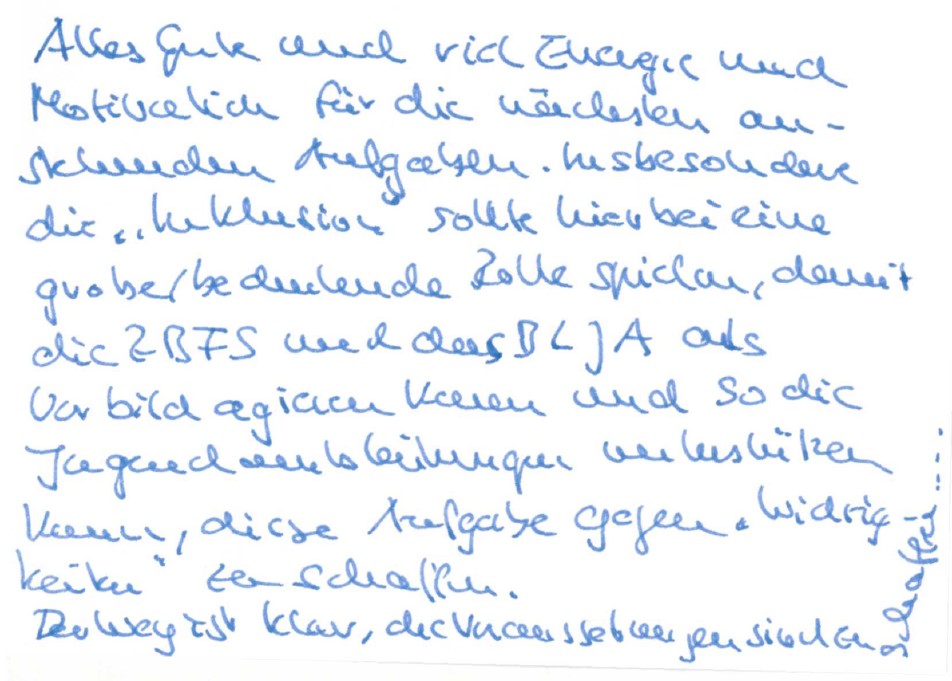 Alles Gute und viel Energie und
Motivation für die nächsten an-
stehenden Aufgaben. Insbesondere
die „Inklusion" sollte hierbei eine
große/bedeutende Rolle spielen, damit
die ZBFS und das BLJA als
Vorbild agieren kann und so die
Jugendamtsleitungen unterstützen
kann, diese Aufgabe gegen „Widrig-
keiten" zu schaffen.
Der Weg ist klar, die Voraussetzungen sind zu
schaffen ....